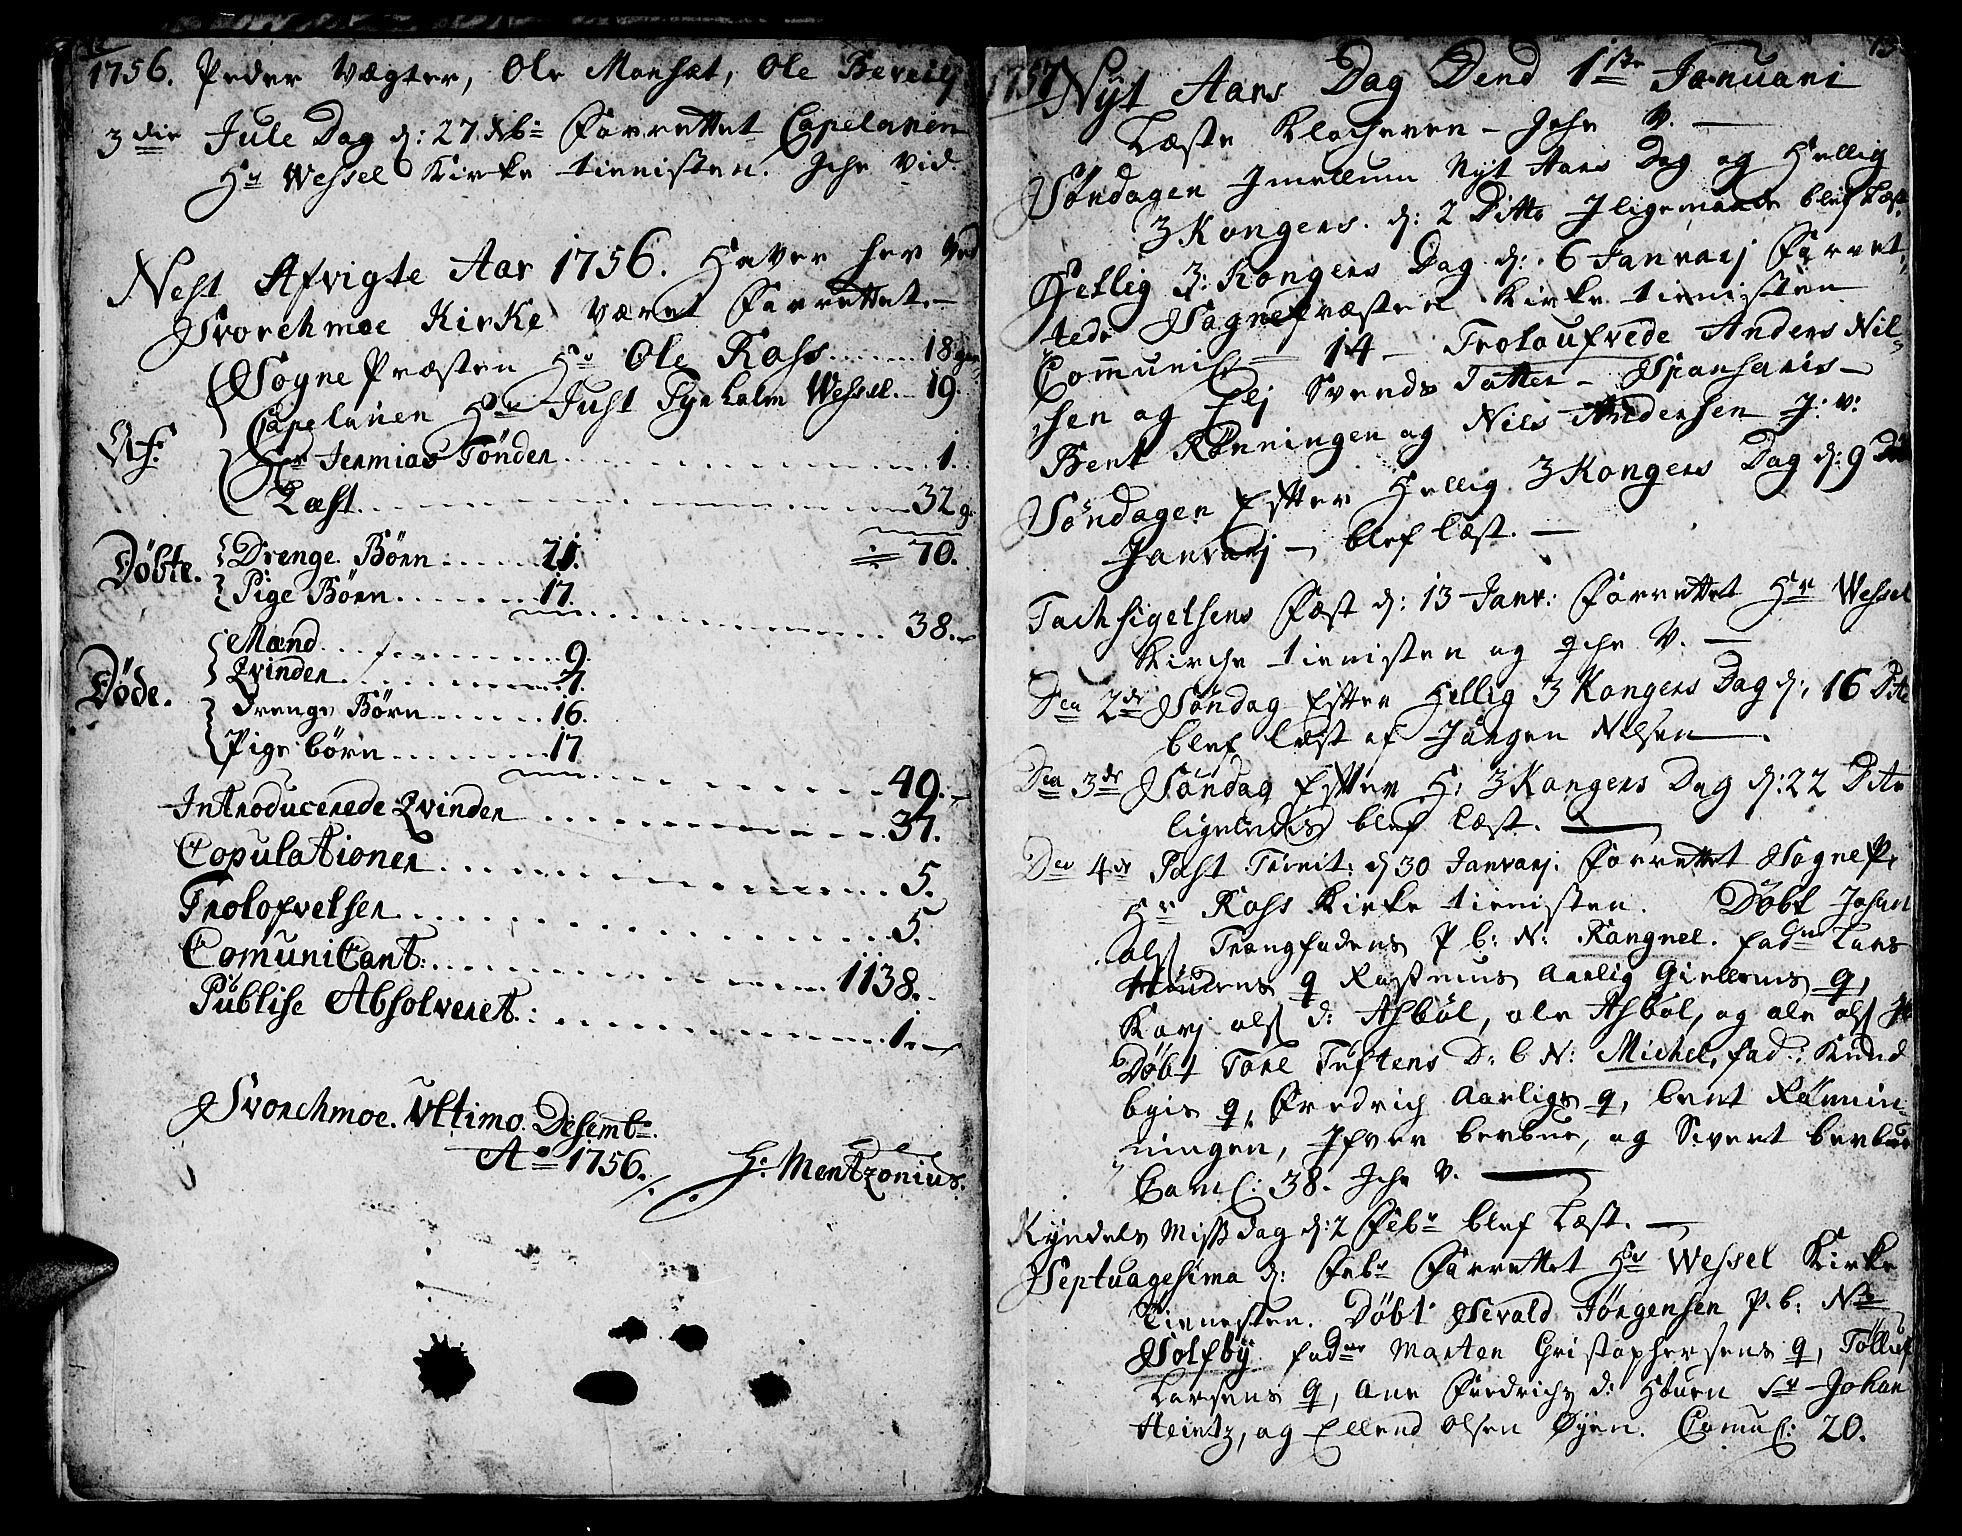 1756. Peder Vægter, Ole Monsæt, Ole Bereily
3die Jule Dag d: 27 Xb= Forrettet Capelanen
Hr Wessel Kirke tienisten. Jche Vid.
Nest Afvigte Aar 1756. Haver her ved
Svorchmoe Kirke været Forrettet.-
Sogne Præsten Hr Ole Ross........18 gr
Capelanen Hr Just Fyxholm Wessel...19.
Af.
Hr Jermias Tönder..........1.
Læst..........32 g.
70.
Döbte.
Drenge Börn......21.
Pige Börn.......17.
38.
Döde.
Mænd.........9.
Qvinder.........7.
Drenge Börn......16.
Pige börn.......17
49.
Introducerede Qvinder..........37.
Copulationer..........5.
Trolofvelser..........5.
Comunicant:..........1138.
Publise Absolveret.:..........1.
Svorchmoe. Ultimo. Desembr.
Ao 1756.
H. Mentzonius.
13
1757 Nyt Aars Dag Dend 1ste Januari
Læste Klocheren - Jche V.
Söndagen Jmellum Nyt Aars Dag og Hellig
3 Kongers. d: 2 Ditto Jligemaade blef Læst.
Hellig 3: Kongers Dag d: 6 Janvarj Forret
tede Sognepræsten Kirke tienisten
Communis 14 - Trolaufvede Anders Nil-
sen og Elj Svends Datter - Sponsoris -
Bent Rönningen og Nils Andersen J: V:
Söndagen Efter Hellig 3 Kongers Dag d: 9 Dito
Janvarj - blef læst. -
Tachsigelsens Fæst d: 13 Janv: Forrettet Hr Wessel
Kirche tienisten og Jche V. -
Den 2de Söndag Efter Hellig 3 Kongers Dag d: 16 Dito
blef læst af Jörgen Nilsen
Den 3de Söndag Efter H: 3 Kongers Dag d: 22 Dito
ligeledis blef læst.
Den 4de Post Trinit: d 30 Janvarj. Forrettet Sogne P.
Hr Ross Kirke tienisten. Döbt Johan
ols Trangfodens P b: N: Rangnel. fadr Lars
q Rasmus Aarlig Giellenis q,
Karj ols d: Asböl, ole Asböl, og ole ols
Döbt Tore Tuftens D: b N: Michel, fad: Knud
byis q, Fredrich Aarligs q, bent Rönnin-
ningen, Jfver berbue, og Sivert berbue
Com: 38. Jche V.
Kyndels Miss dag d: 2 Febr blef Læst. -
Septuagesima d: Febr Forrettet Hr Wessel Kirke
Tienesten. Döbt Sevald Jörgensen P. b: N
Solfby fadre Morten Christophersens q, Tölluf
Larsens q, Ane Fredrichs d: Houen Sr Johan
Heintz, og Ellend Olsen Öyen. Comu: 20.